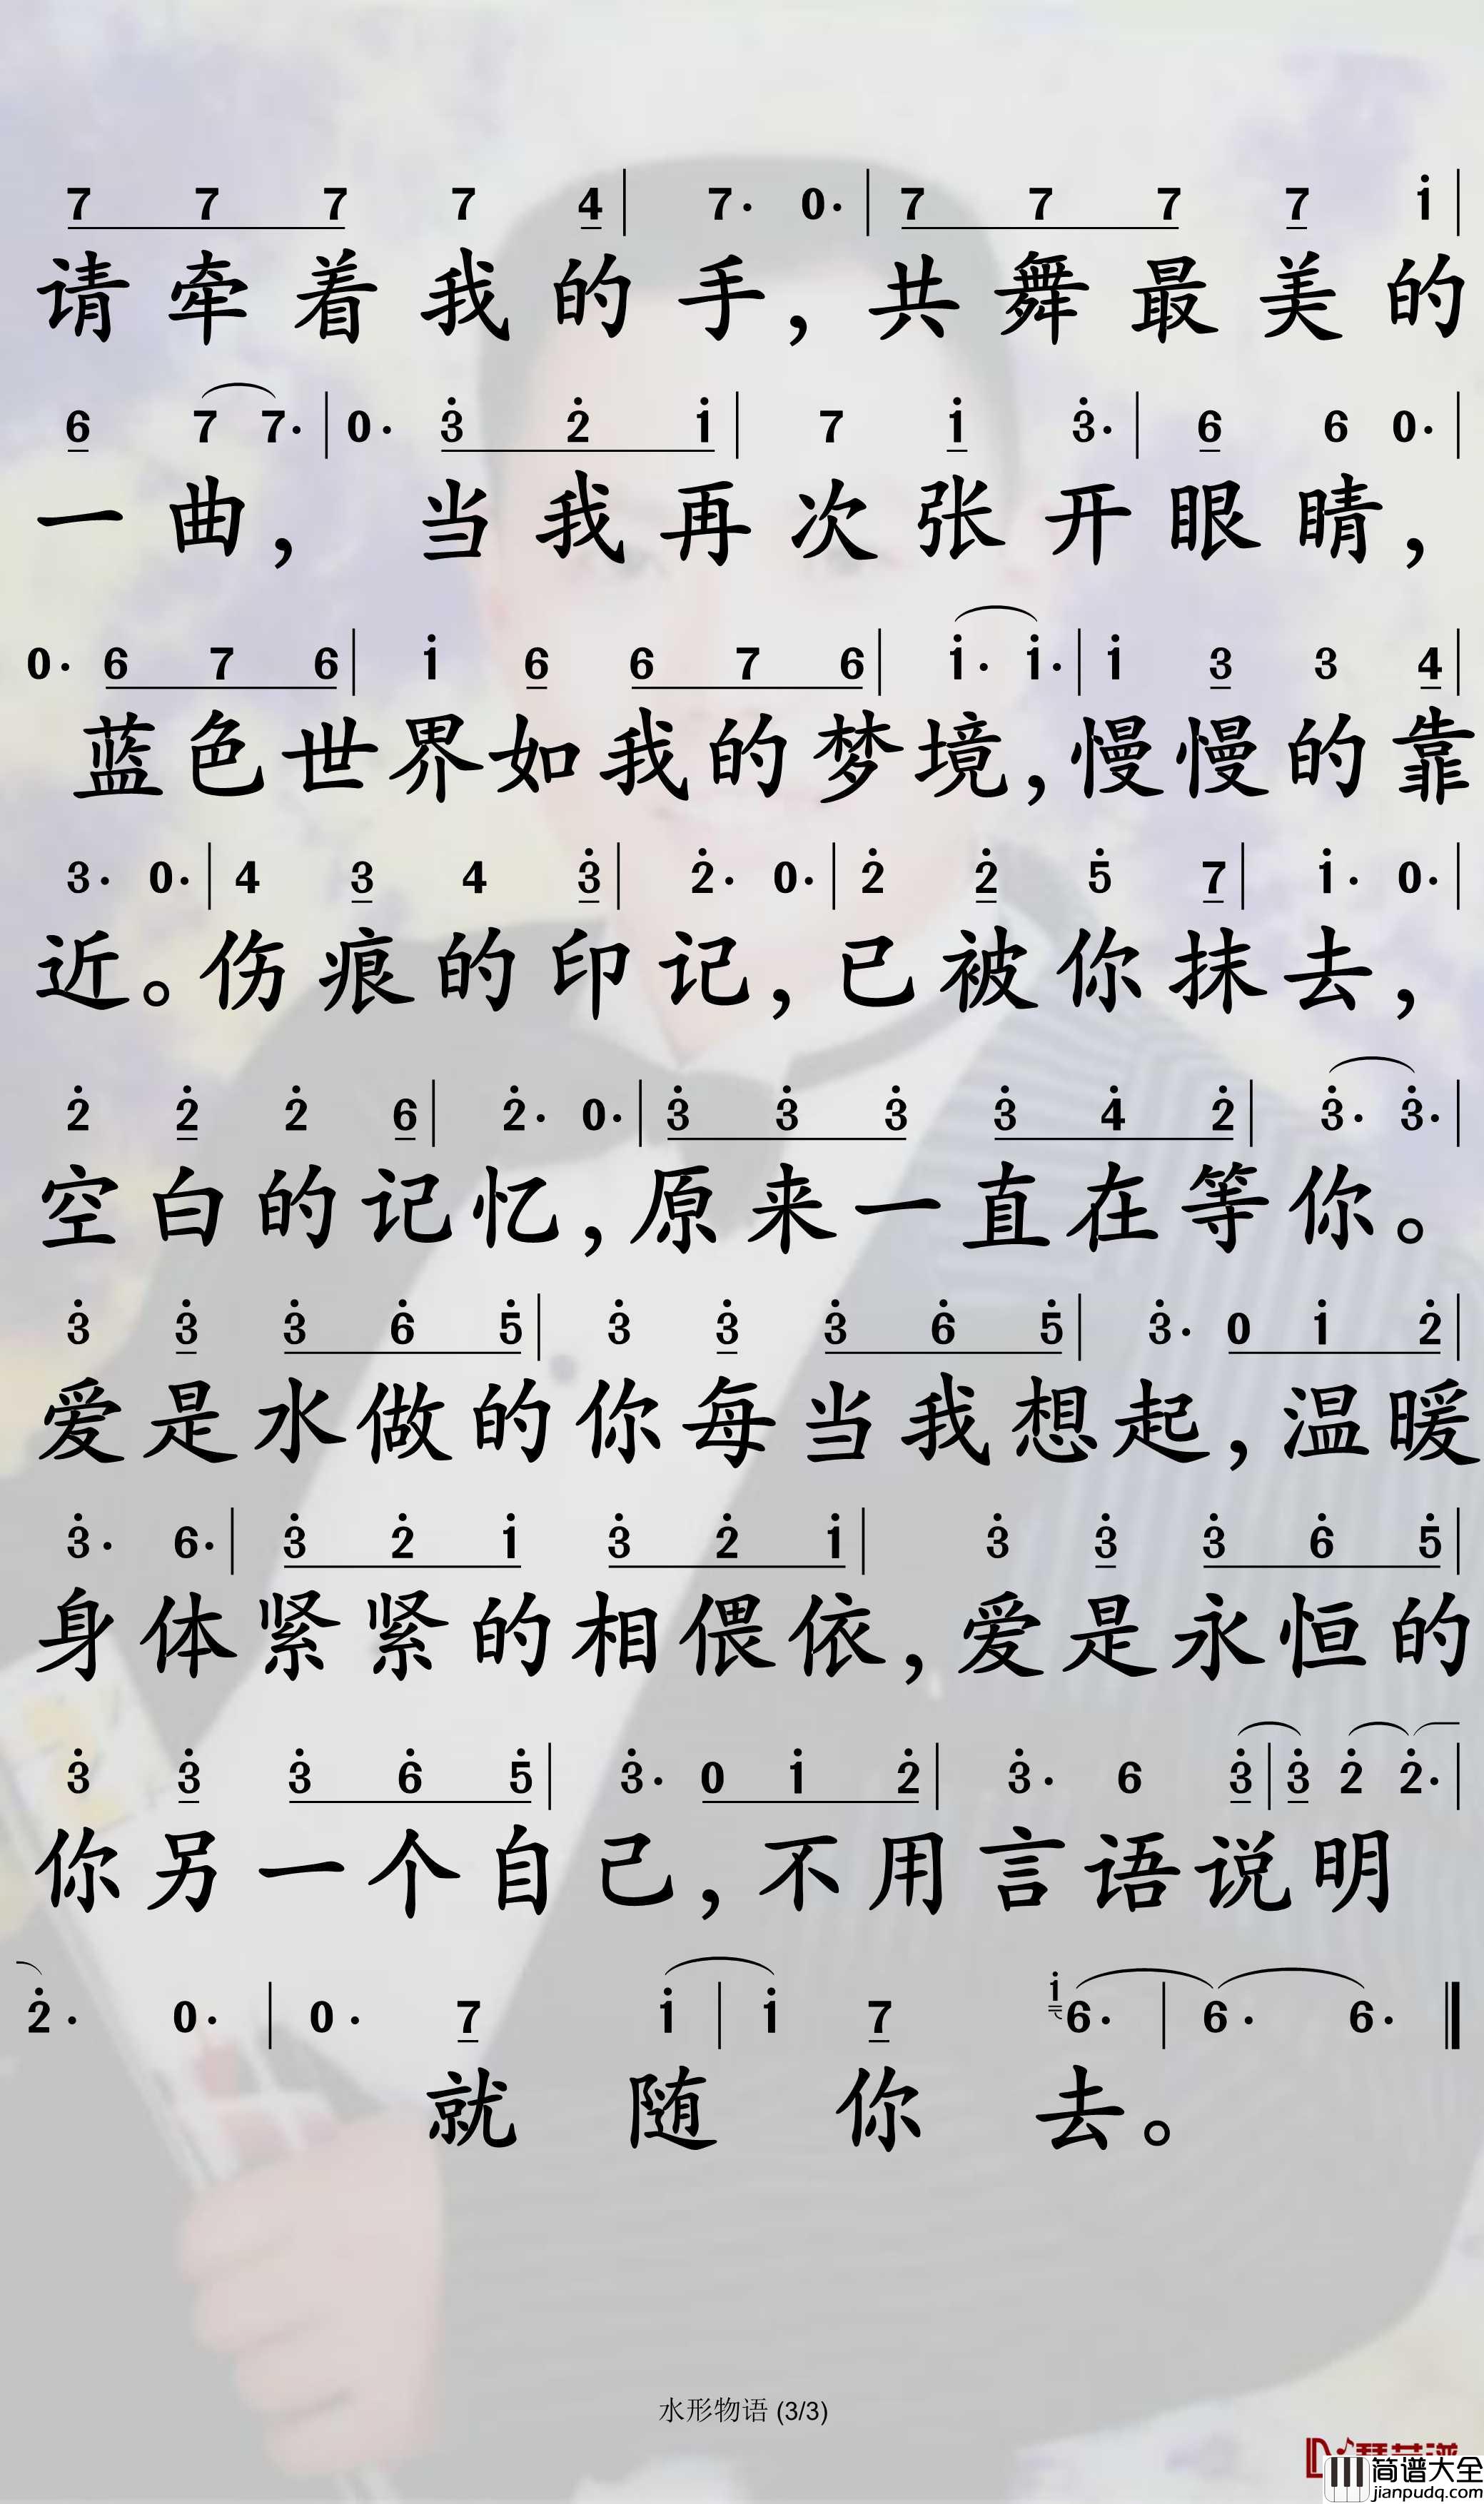 7 7 7 7 4 | 7· 0· | 7 7 7 7 i |
请牵着我的手,共舞最美的
6 7 7· | 0· 3̇ 2̇ i | 7 i 3̇· | 6 6 0· |
一曲, 当我再次张开眼睛,
0· 6 7 6 | i 6 6 7 6 | i· i· | i 3 3 4 |
蓝色世界如我的梦境,慢慢的靠
3· 0· | 4 3 4 3̇ | 2̇· 0· | 2̇ 2̇ 5̇ 7 | i· 0· |
近。伤痕的印记,已被你抹去,
2̇ 2̇ 2̇ 6 | 2̇· 0· | 3̇ 3̇ 3̇ 3̇ 4̇ 2̇ | 3̇· 3̇· |
空白的记忆,原来一直在等你。
3̇ 3̇ 3̇ 6̇ 5̇ | 3̇ 3̇ 3̇ 6̇ 5̇ | 3̇· 0 i 2̇ |
爱是水做的你每当我想起,温暖
3̇· 6· | 3̇ 2̇ i 3̇ 2̇ i | 3̇ 3̇ 3̇ 6̇ 5̇ |
身体紧紧的相偎依,爱是永恒的
3̇ 3̇ 3̇ 6̇ 5̇ | 3̇· 0 i 2̇ | 3̇· 6 3̇ | 3̇ 2̇ 2̇· |
你另一个自己,不用言语说明
2̇· 0· | 0· 7 i | i 7 i 6· | 6· 6· ‖
就随你去。
水形物语 (3/3)
简谱大全
jianpudq.com